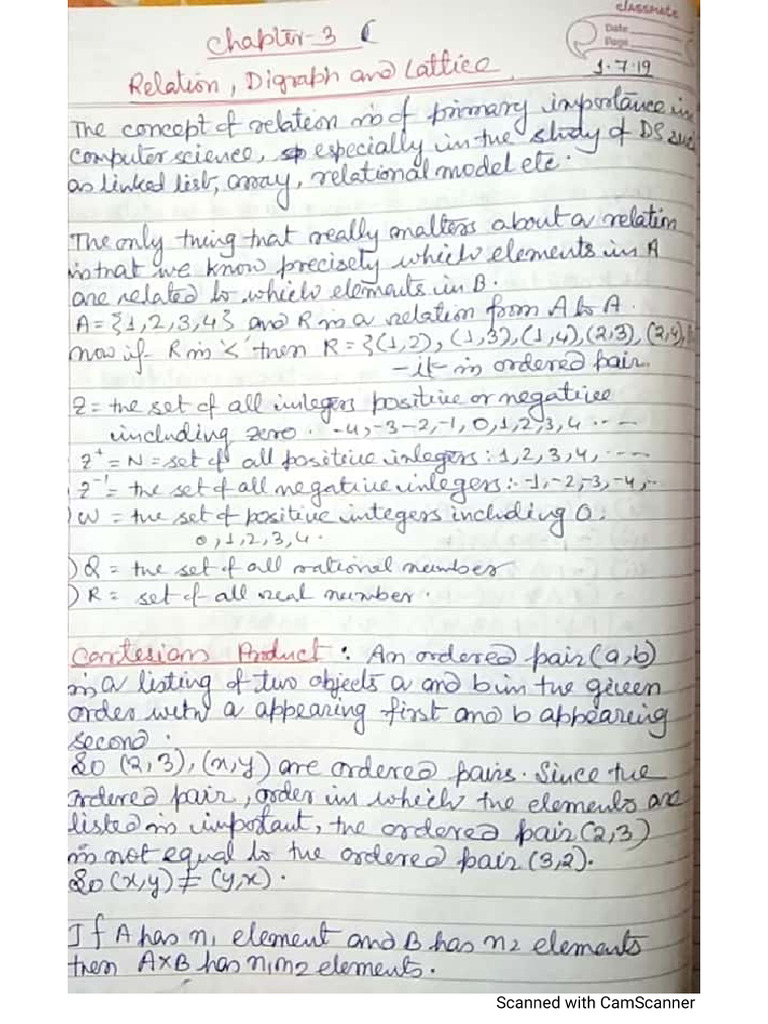 classmate
Date
Page
1.7.19
Chapter-3
Relation, Digraph and Lattice
The concept of relation is of primary importance in
computer science, especially in the study of DS such
as linked list, array, relational model etc.
The only thing that really matters about a relation
is that we know precisely which elements in A
are related to which elements in B.
A = {1,2,3,4} and R is a relation from A to A.
Now if R is '<' then R = {(1,2), (1,3), (1,4), (2,3), (2,4),
- it is ordered pair.
Z = the set of all integers positive or negative
including zero. -4,-3-2,-1, 0,1,2,3,4 ...
Z+ = N = set of all positive integers : 1,2,3,4, ...
Z-1 = the set of all negative integers : -1,-2,-3,-4, ..
) W = the set of positive integers including 0.
0,1,2,3,4.
) Q = the set of all rational number
) R = set of all real number.
Cartesian Product : An ordered pair (a,b)
is a listing of two objects a and b in the given
order with a appearing first and b appeareing
second.
So (2,3), (x,y) are ordered pairs. Since the
ordered pair, order in which the elements are
listed is important, the ordered pair (2,3)
is not equal to the ordered pair (3,2).
So (x,y) ≠ (y,x).
If A has n1 element and B has n2 elements
then A×B has n1n2 elements.
Scanned with CamScanner